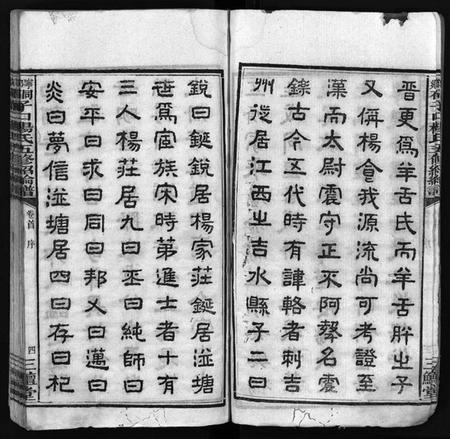 晉更為羊舌氏而羊舌胖之子
又偁楊會我源流尚可考證至
漢而太尉震守正不阿聲名震
鑠古今宋時有諱輅者刺吉
州迻居江西之吉水縣子二曰
銳曰鋋銳居楊家莊鋋居湴塘
世為宦族宋時第進士者十有
三人楊莊居九曰丕曰純師曰
安平曰求曰同曰邦乂曰邁曰
炎曰夢信湴塘居四曰存曰杞
卷首 序
四
三鱣堂